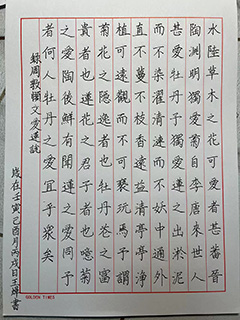 水陸草木之花可愛者甚蕃晉
陶渊明獨愛菊自李唐来世人
甚愛牡丹予獨愛蓮之出淤泥
而不染濯清漣而不妖中通外
直不蔓不枝香遠益清亭亭净
植可遠觀而不可褻玩焉予謂
菊花之隱逸者也牡丹花之富
貴者也蓮花之君子者也噫菊
之愛陶後鮮有聞蓮之愛同予
者何人牡丹之愛宜乎衆矣
録周敦頤文愛蓮說
歲在壬寅己酉月丙戌日王書
GOLDEN TIMES